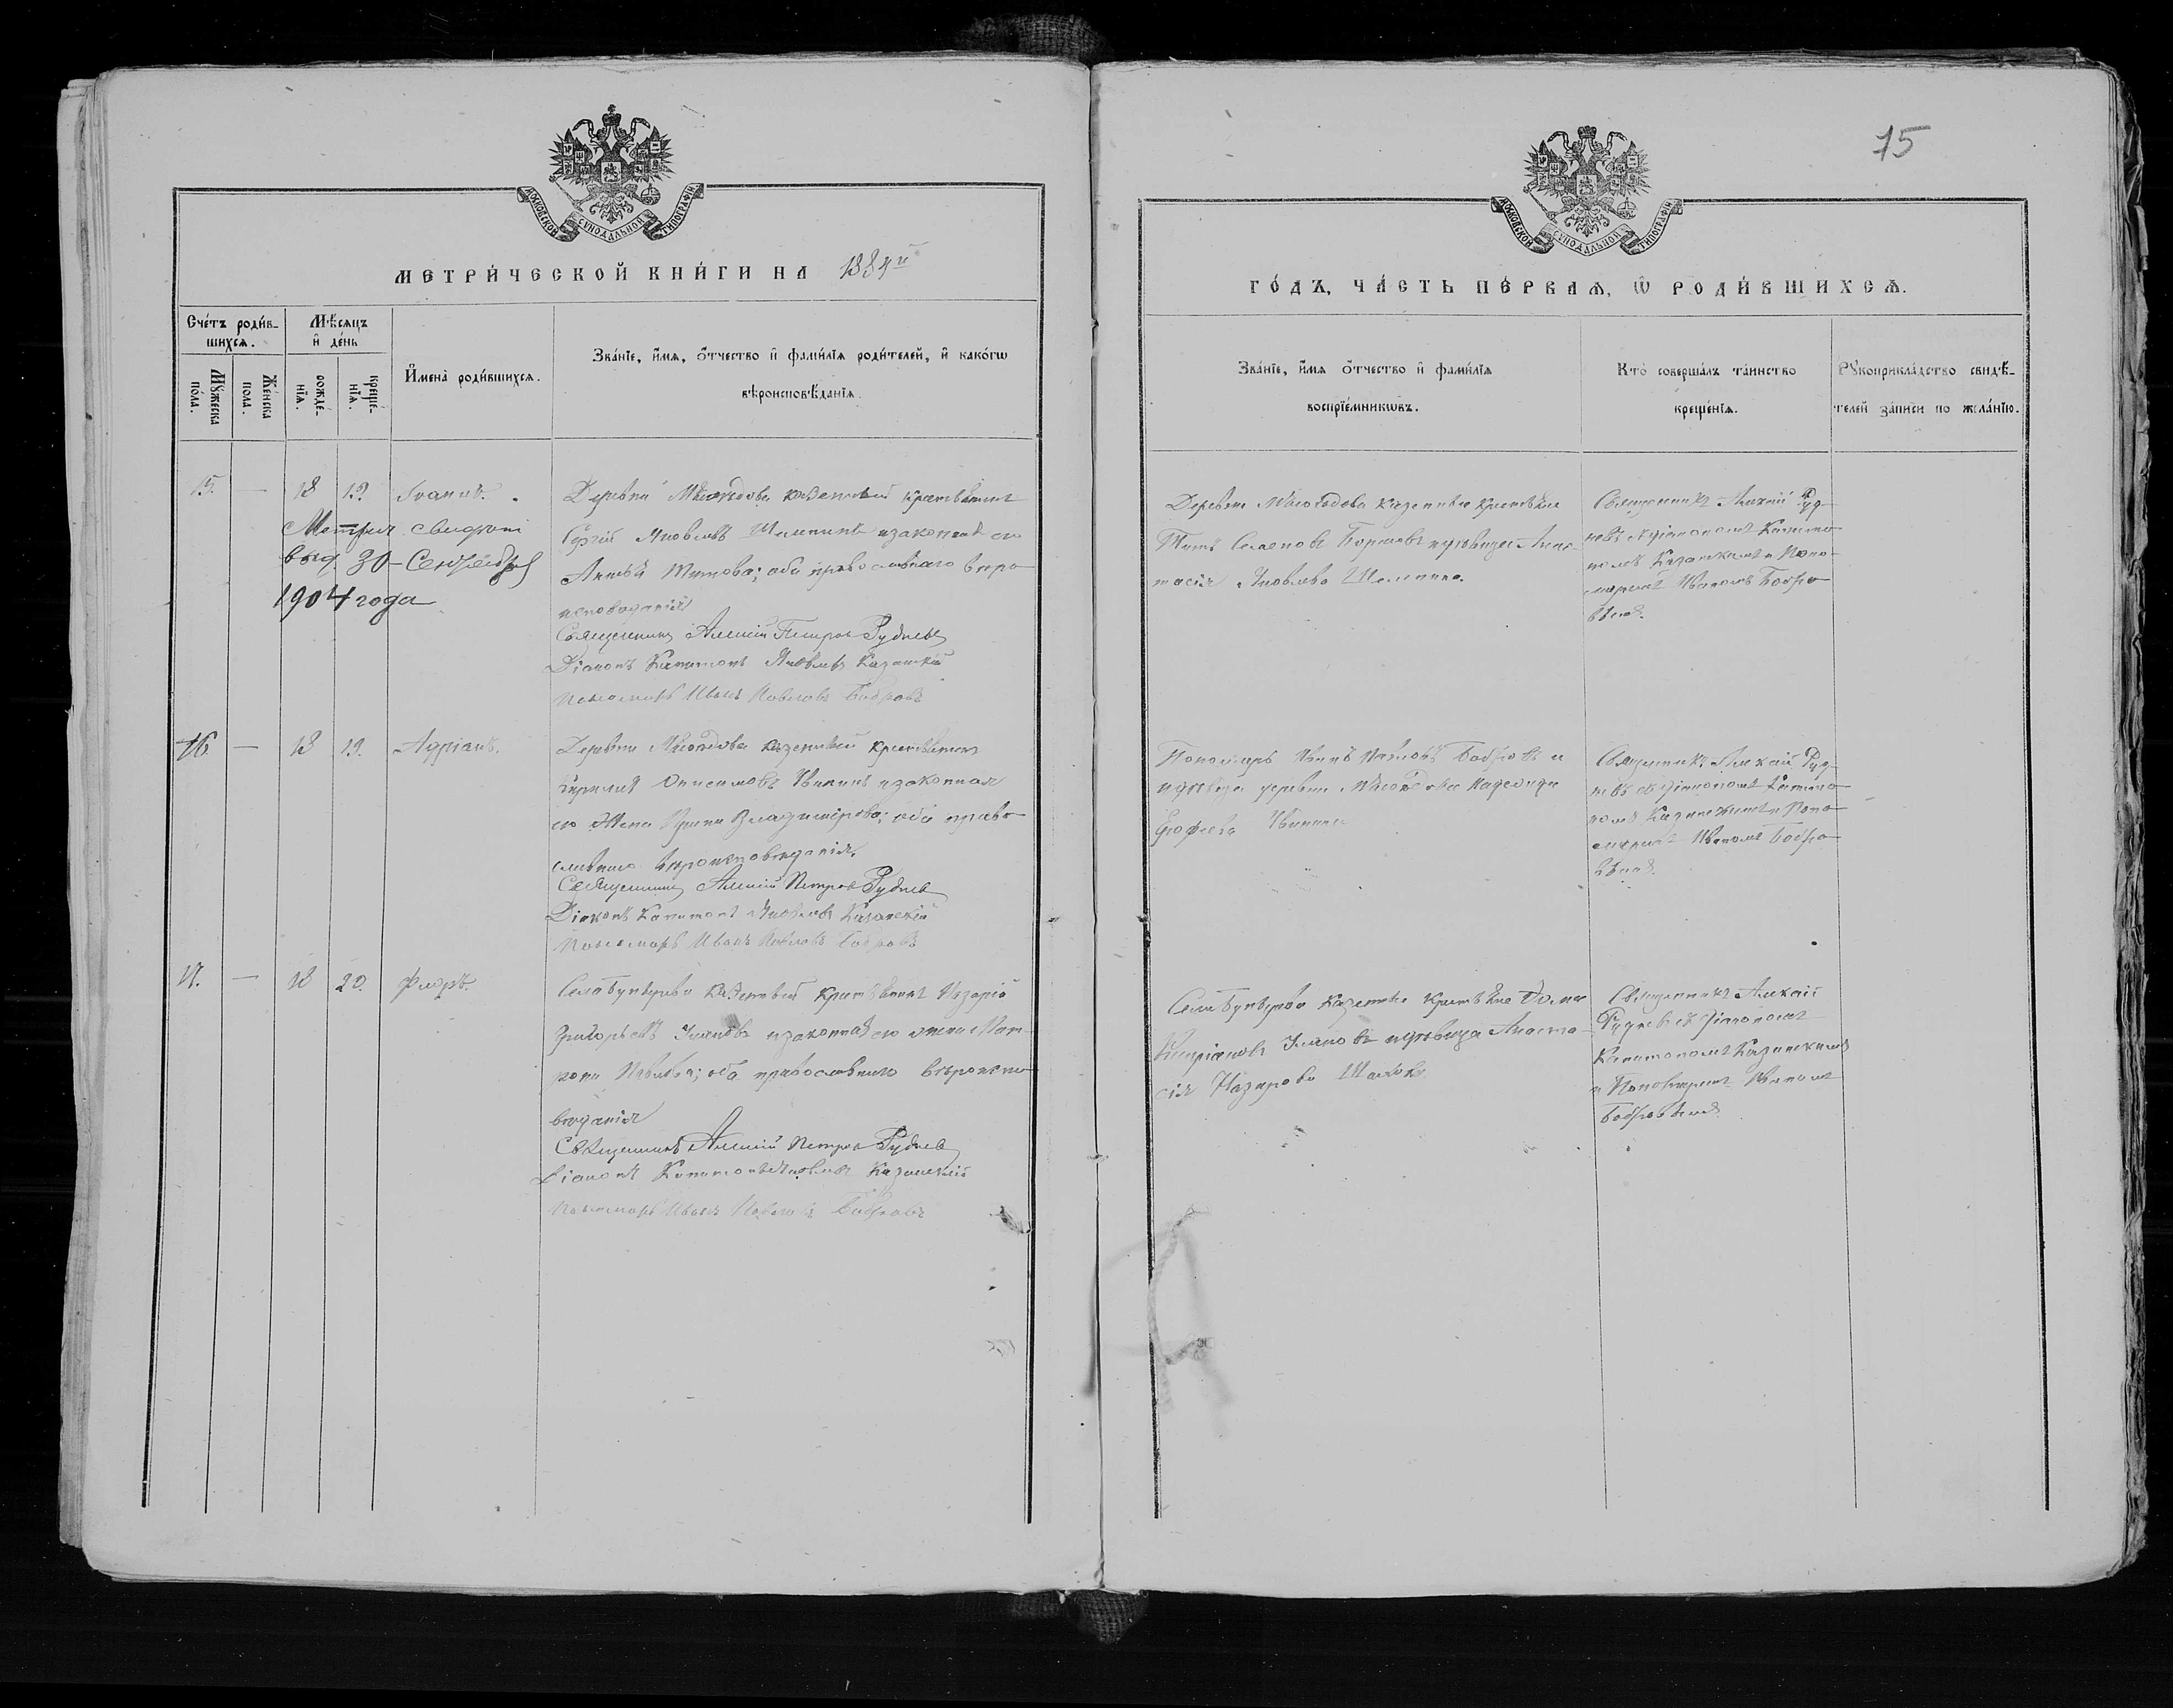 МОСКОВСКОЙ СѴНОДАЛЬНОЙ ТИПОГРАФІИ
МЕТРИ́ЧЕСКОЙ КНИ́ГИ НА 1884й
Сче́тъ роди́в-
шихсѧ.
Мѣ́сѧцъ
и҆ де́нь
Мꙋ́жеска
по́ла.
Же́нска
по́ла.
рожде́-
нїѧ.
креще́-
нїѧ.
И҆мена̀ роди́вшихсѧ.
Зва́нїе, и҆́мѧ, ѻ҆́тчество и҆ фами́лїѧ роди́телей, и҆ како́гѡ
вѣроисповѣ́данїѧ.
15. — 18 19. Іоаннъ.
Метрич свидѣт
выд 30 Сентября
1904 года
Деревни казенный крестьянинъ
Сергій Яковлевъ и законная его
Титова; оба православнаго вѣро
исповѣданія
Священникъ Алексій Петровъ Рудневъ
Діаконъ Капитонъ Яковлевъ Казанскій
Пономарь Иванъ Павловъ Бобровъ
16. — 18 19. Адріанъ.
Деревни казенный крестьянинъ
Онисимовъ и законная
его жена Владимірова; оба право
славнаго вѣроисповѣданія.
Священникъ Алексій Петровъ Рудневъ
Діаконъ Капитонъ Яковлевъ Казанскій
Пономарь Иванъ Павловъ Бобровъ
17. — 18 20. Флоръ.
Села казенный крестьянинъ Назарій
Григорьевъ и законная его жена Мат
рона Павлова; оба православнаго вѣроиспо
вѣданія
Священникъ Алексій Петровъ Рудневъ
Діаконъ Капитонъ Яковлевъ Казанскій
Пономарь Иванъ Павловъ Бобровъ
75
МОСКОВСКОЙ СѴНОДАЛЬНОЙ ТИПОГРАФІИ
ГО́ДЪ, ЧА́СТЬ ПЕ́РВАѦ, Ѡ҆ РОДИ́ВШИХСѦ.
Зва́нїе, и҆́мѧ ѻ҆́тчество и҆ фами́лїѧ
воспрїе́мникѡвъ.
Кто̀ соверша́лъ та́инство
креще́нїѧ.
Рꙋкоприкла́дство свидѣ́-
телей за́писи по жела́нїю.
Деревни казенные крестьяне
Титъ Семеновъ и дѣвица Анас-
тасія Яковлева
Священникъ Алексій Руд-
невъ съ діакономъ Капито
номъ Казанскимъ и Поно-
маремъ Иваномъ Бобро
вымъ.
Пономарь Иванъ Павловъ Бобровъ и
дѣвица деревни Надежда
Священникъ Алексій Руд-
невъ съ діакономъ Капито
номъ Казанскимъ и Поно
маремъ Иваномъ Бобро
вымъ.
Села казенные крестьяне
Кипріановъ и дѣвица Анаста
сія Назарова
Священникъ Алексій
Рудневъ съ діакономъ
Капитономъ Казанскимъ
и Пономаремъ Иваномъ
Бобровымъ